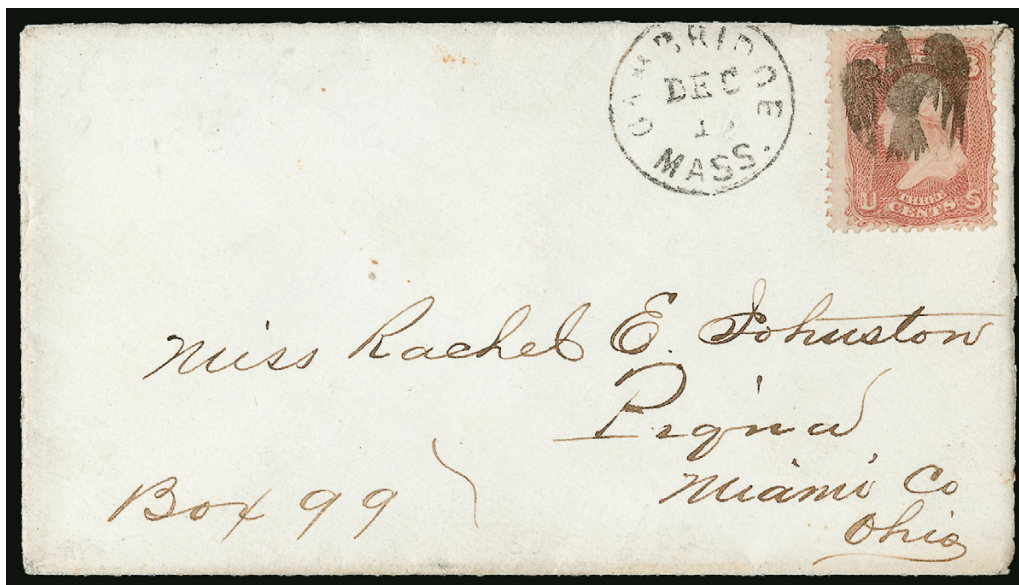 CAMBRIDGE
DEC
MASS.
3
U THREE CENTS S
Miss Rachel E. Johnston
Piqua
Miami Co
Ohio
Box 99